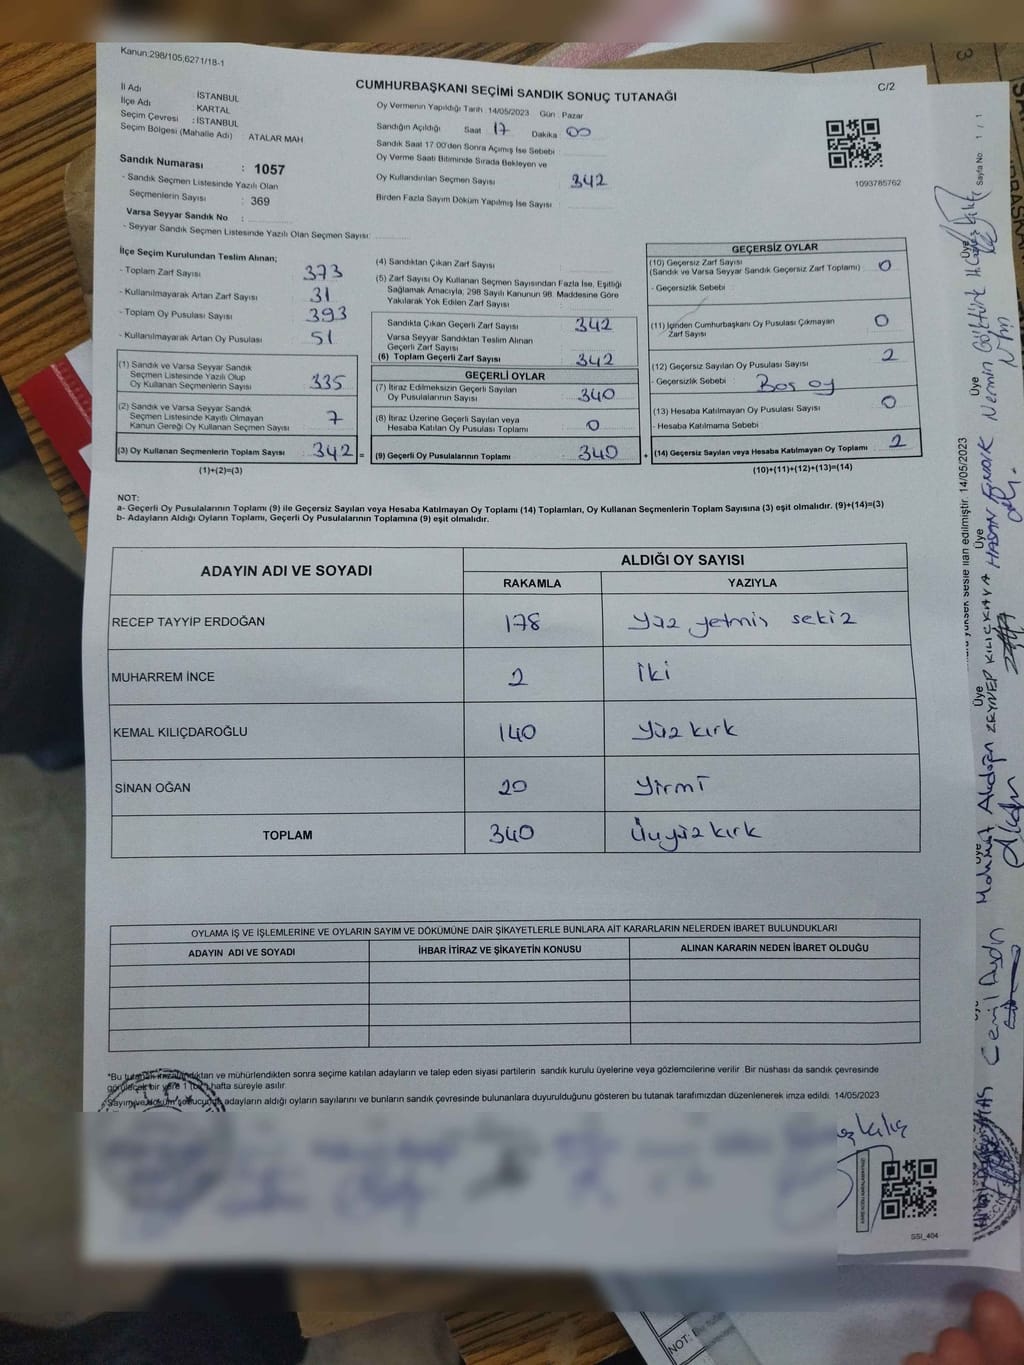 Kanun:298/105,6271/18-1
C/2
CUMHURBAŞKANI SEÇİMİ SANDIK SONUÇ TUTANAĞI
İl Adı İSTANBUL
İlçe Adı : KARTAL
Seçim Çevresi : İSTANBUL
Seçim Bölgesi (Mahalle Adı) ATALAR MAH
Sandık Numarası : 1057
- Sandık Seçmen Listesinde Yazılı Olan
Seçmenlerin Sayısı : 369
Varsa Seyyar Sandık No :
- Seyyar Sandık Seçmen Listesinde Yazılı Olan Seçmen Sayısı:
Oy Vermenin Yapıldığı Tarih : 14/05/2023 Gün : Pazar
Sandığın Açıldığı Saat 17 Dakika 00
Sandık Saat 17:00'den Sonra Açımış İse Sebebi :
Oy Verme Saati Bitiminde Sırada Bekleyen ve
Oy Kullandırılan Seçmen Sayısı 342
Birden Fazla Sayım Döküm Yapılmış İse Sayısı :
1093785762
Sayfa No: 1 / 1
İlçe Seçim Kurulundan Teslim Alınan;
- Toplam Zarf Sayısı 373
- Kullanılmayarak Artan Zarf Sayısı 31
- Toplam Oy Pusulası Sayısı 393
- Kullanılmayarak Artan Oy Pusulası 51
(1) Sandık ve Varsa Seyyar Sandık
Seçmen Listesinde Yazılı Olup
Oy Kullanan Seçmenlerin Sayısı 335
(2) Sandık ve Varsa Seyyar Sandık
Seçmen Listesinde Kayıtlı Olmayan
Kanun Gereği Oy Kullanan Seçmen Sayısı 7
(3) Oy Kullanan Seçmenlerin Toplam Sayısı : 342 =
(1)+(2)=(3)
(4) Sandıktan Çıkan Zarf Sayısı
(5) Zarf Sayısı Oy Kullanan Seçmen Sayısından Fazla İse, Eşitliği
Sağlamak Amacıyla, 298 Sayılı Kanunun 98. Maddesine Göre
Yakılarak Yok Edilen Zarf Sayısı
Sandıkta Çıkan Geçerli Zarf Sayısı 342
Varsa Seyyar Sandıktan Teslim Alınan
Geçerli Zarf Sayısı
(6) Toplam Geçerli Zarf Sayısı 342
GEÇERLİ OYLAR
(7) İtiraz Edilmeksizin Geçerli Sayılan
Oy Pusulalarının Sayısı 340
(8) İtiraz Üzerine Geçerli Sayılan veya
Hesaba Katılan Oy Pusulası Toplamı 0
(9) Geçerli Oy Pusulalarının Toplamı : 340 +
GEÇERSİZ OYLAR
(10) Geçersiz Zarf Sayısı
(Sandık ve Varsa Seyyar Sandık Geçersiz Zarf Toplamı) 0
- Geçersizlik Sebebi :
(11) İçinden Cumhurbaşkanı Oy Pusulası Çıkmayan
Zarf Sayısı 0
(12) Geçersiz Sayılan Oy Pusulası Sayısı 2
- Geçersizlik Sebebi : Boş oy
(13) Hesaba Katılmayan Oy Pusulası Sayısı 0
- Hesaba Katılmama Sebebi :
(14) Geçersiz Sayılan veya Hesaba Katılmayan Oy Toplamı : 2
(10)+(11)+(12)+(13)=(14)
NOT:
a- Geçerli Oy Pusulalarının Toplamı (9) ile Geçersiz Sayılan veya Hesaba Katılmayan Oy Toplamı (14) Toplamları, Oy Kullanan Seçmenlerin Toplam Sayısına (3) eşit olmalıdır. (9)+(14)=(3)
b- Adayların Aldığı Oyların Toplamı, Geçerli Oy Pusulalarının Toplamına (9) eşit olmalıdır.
ADAYIN ADI VE SOYADI ALDIĞI OY SAYISI
RAKAMLA YAZIYLA
RECEP TAYYİP ERDOĞAN 178 Yüz yetmiş sekiz
MUHARREM İNCE 2 İki
KEMAL KILIÇDAROĞLU 140 Yüz kırk
SİNAN OĞAN 20 Yirmi
TOPLAM 340 Üçyüz kırk
OYLAMA İŞ VE İŞLEMLERİNE VE OYLARIN SAYIM VE DÖKÜMÜNE DAİR ŞİKAYETLERLE BUNLARA AİT KARARLARIN NELERDEN İBARET BULUNDUKLARI
ADAYIN ADI VE SOYADI İHBAR İTİRAZ VE ŞİKAYETİN KONUSU ALINAN KARARIN NEDEN İBARET OLDUĞU
*Bu tutanak imzalandıktan ve mühürlendikten sonra seçime katılan adayların ve talep eden siyasi partilerin sandık kurulu üyelerine veya gözlemcilerine verilir Bir nüshası da sandık çevresinde
görülecek bir yere 1 (bir) hafta süreyle asılır.
adayların aldığı oyların sayılarını ve bunların sandık çevresinde bulunanlara duyurulduğunu gösteren bu tutanak tarafımızdan düzenlenerek imza edildi. 14/05/2023
SSI_404
yüksek sesle ilan edilmiştir. 14/05/2023
Üye
Üye
Üye
Üye
Üye
Cemil Aydın
Mehmet Akdoğan
ZEYNEP KILIÇKAYA
HASAN
Nermin Göktürk
NOT: